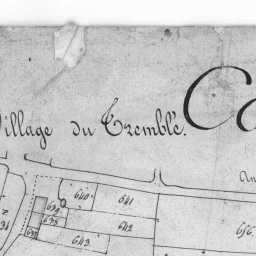 Village du Tremblé.
Ca
An
640
641
642
643
656